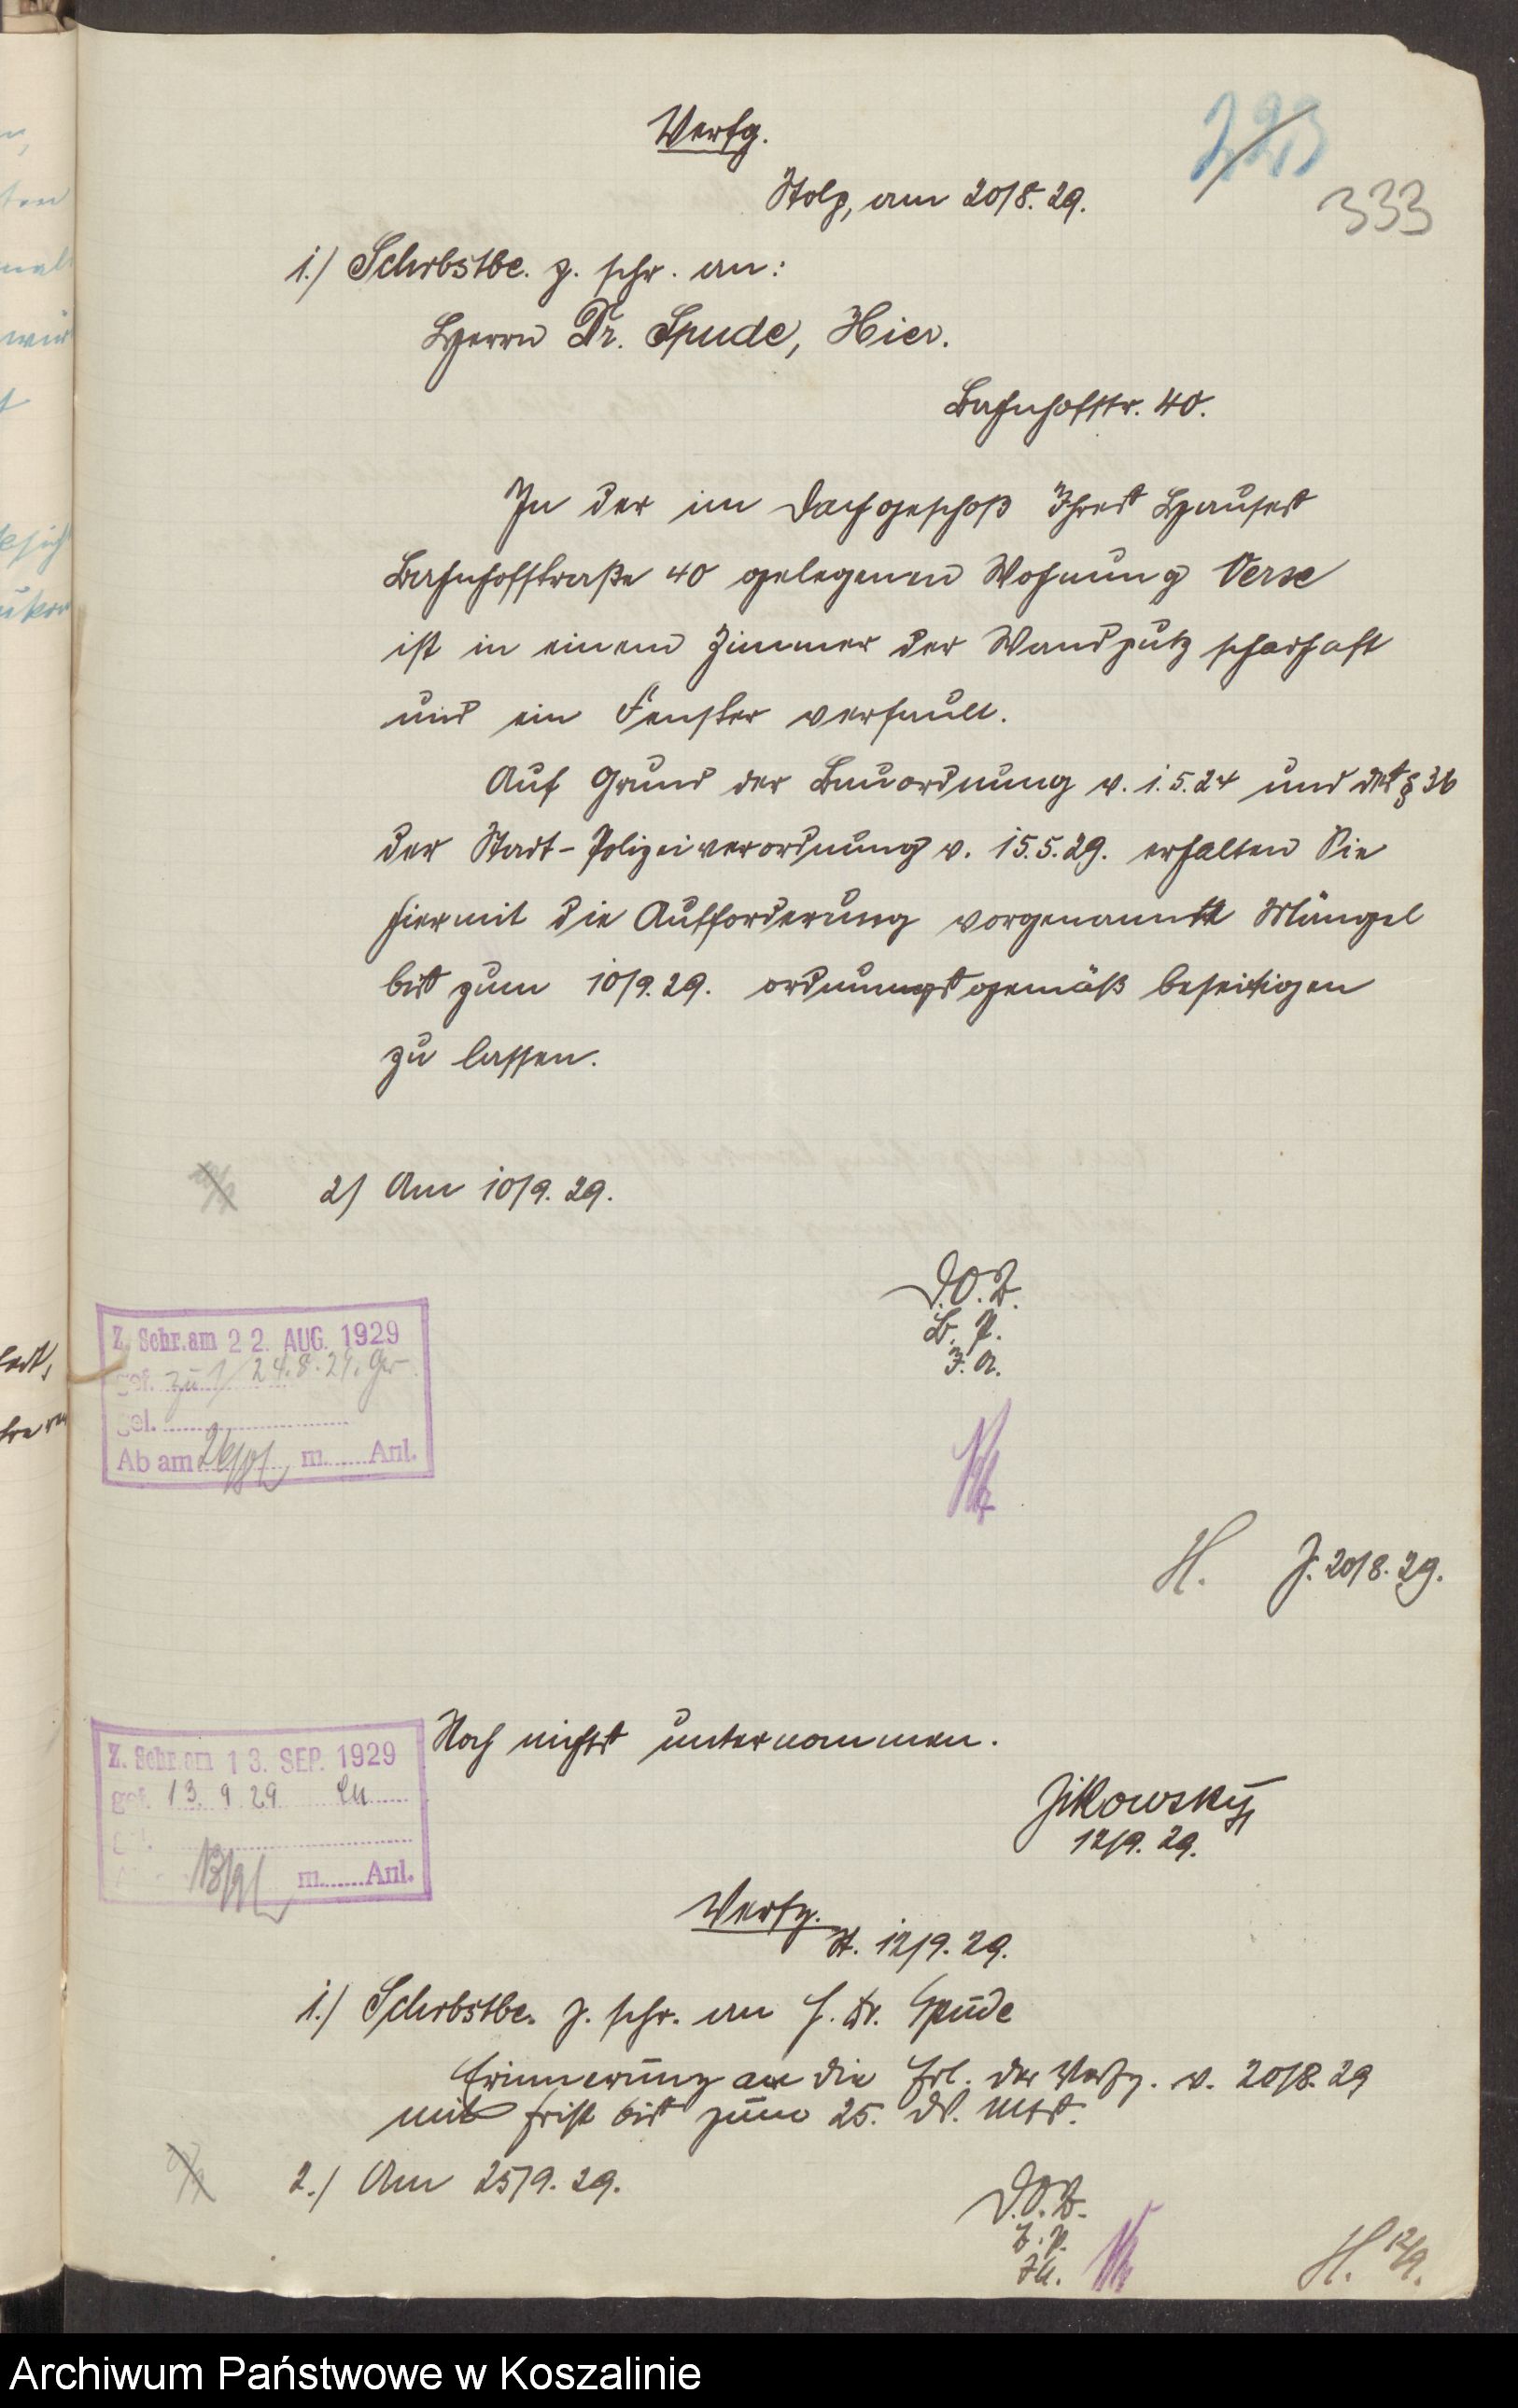 Verfg.
293
333
Stolp, am 20/8.29.
1./ Schrbstbe. z. schr. an:
Herrn Dr. Spude, Hier.
Bahnhofstr. 40.
In der im Dachgeschoß Ihres Hauses
Bahnhofstraße 40 gelegenen Wohnung Verse
ist in einem Zimmer der Wandputz schadhaft
und ein Fenster verfault.
Auf Grund der Bauordnung v. 1.5.24 und des § 36
der Stadt-Polizeiverordnung v. 15.5.29. erhalten Sie
hiermit die Aufforderung vorgenannte Mängel
bis zum 10/9.29. ordnungsgemäß beseitigen
zu lassen.
2/ Am 10/9.29.
D.O.B.
B. P.
I. A.
Z. Schr. am 22. AUG. 1929
gef. zu 1/ 24.8.29.
gel.
Ab am 26/8 m. Anl.
H. J. 20/8.29.
Noch nichts unternommen.
Jikowsky
12/9.29.
Z. Schr. am 13. SEP. 1929
gef. 13.9.29
13/9 m. Anl.
Verfg.
St. 12/9.29.
1./ Schrbstbe. z. schr. an H. Dr. Spude
Erinnerung an die Erl. der Verfg. v. 20/8.29
mit Frist bis zum 25. ds. Mts.
2./ Am 25/9.29.
D.O.B.
B. P.
I.A.
H. 12/9.
Archiwum Państwowe w Koszalinie